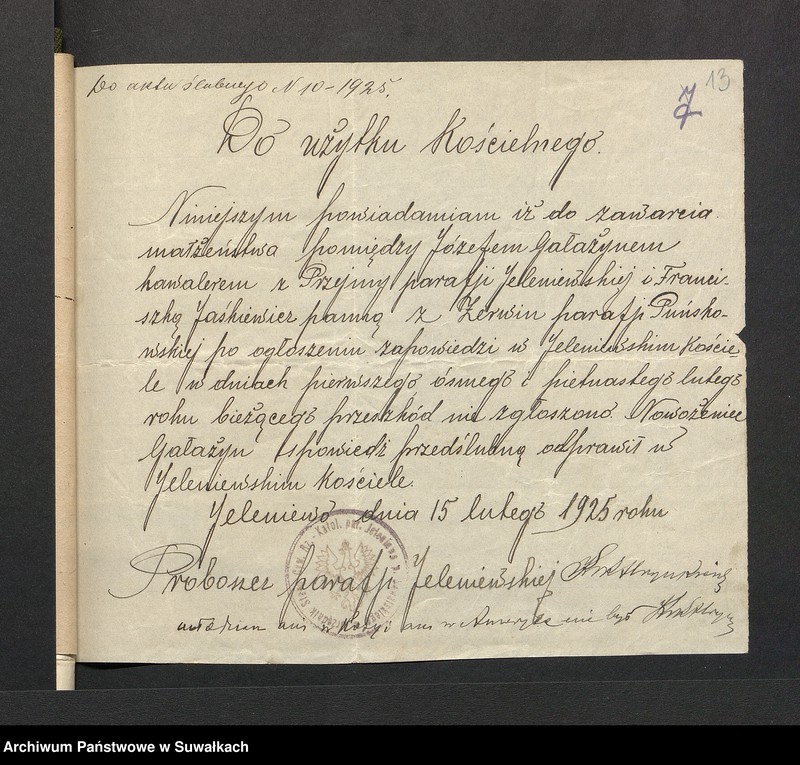 Do aktu ślubnego N 10 – 1925.
13
Do użytku Kościelnego.
Niniejszym powiadamiam iż do zawarcia
małżeństwa pomiędzy Józefem Gałażynem
kawalerem z Przejmy parafji Jeleniewskiej i Franci-
szką Jaśkiewicz panną z Żerwin parafji Puńsko-
wskiej po ogłoszeniu zapowiedzi w Jeleniewskim Koście-
le w dniach pierwszego ósmego i pietnastego lutego
roku bieżącego przeszkód nie zgłoszono. Nowożeniec
Gałażyn spowiedź przedślubną odprawił w
Jeleniewskim Kościele.
Jeleniewo dnia 15 lutego 1925 roku
Proboszcz parafji Jeleniewskiej
ani w Rosji ani w Ameryce nie był
Archiwum Państwowe w Suwałkach